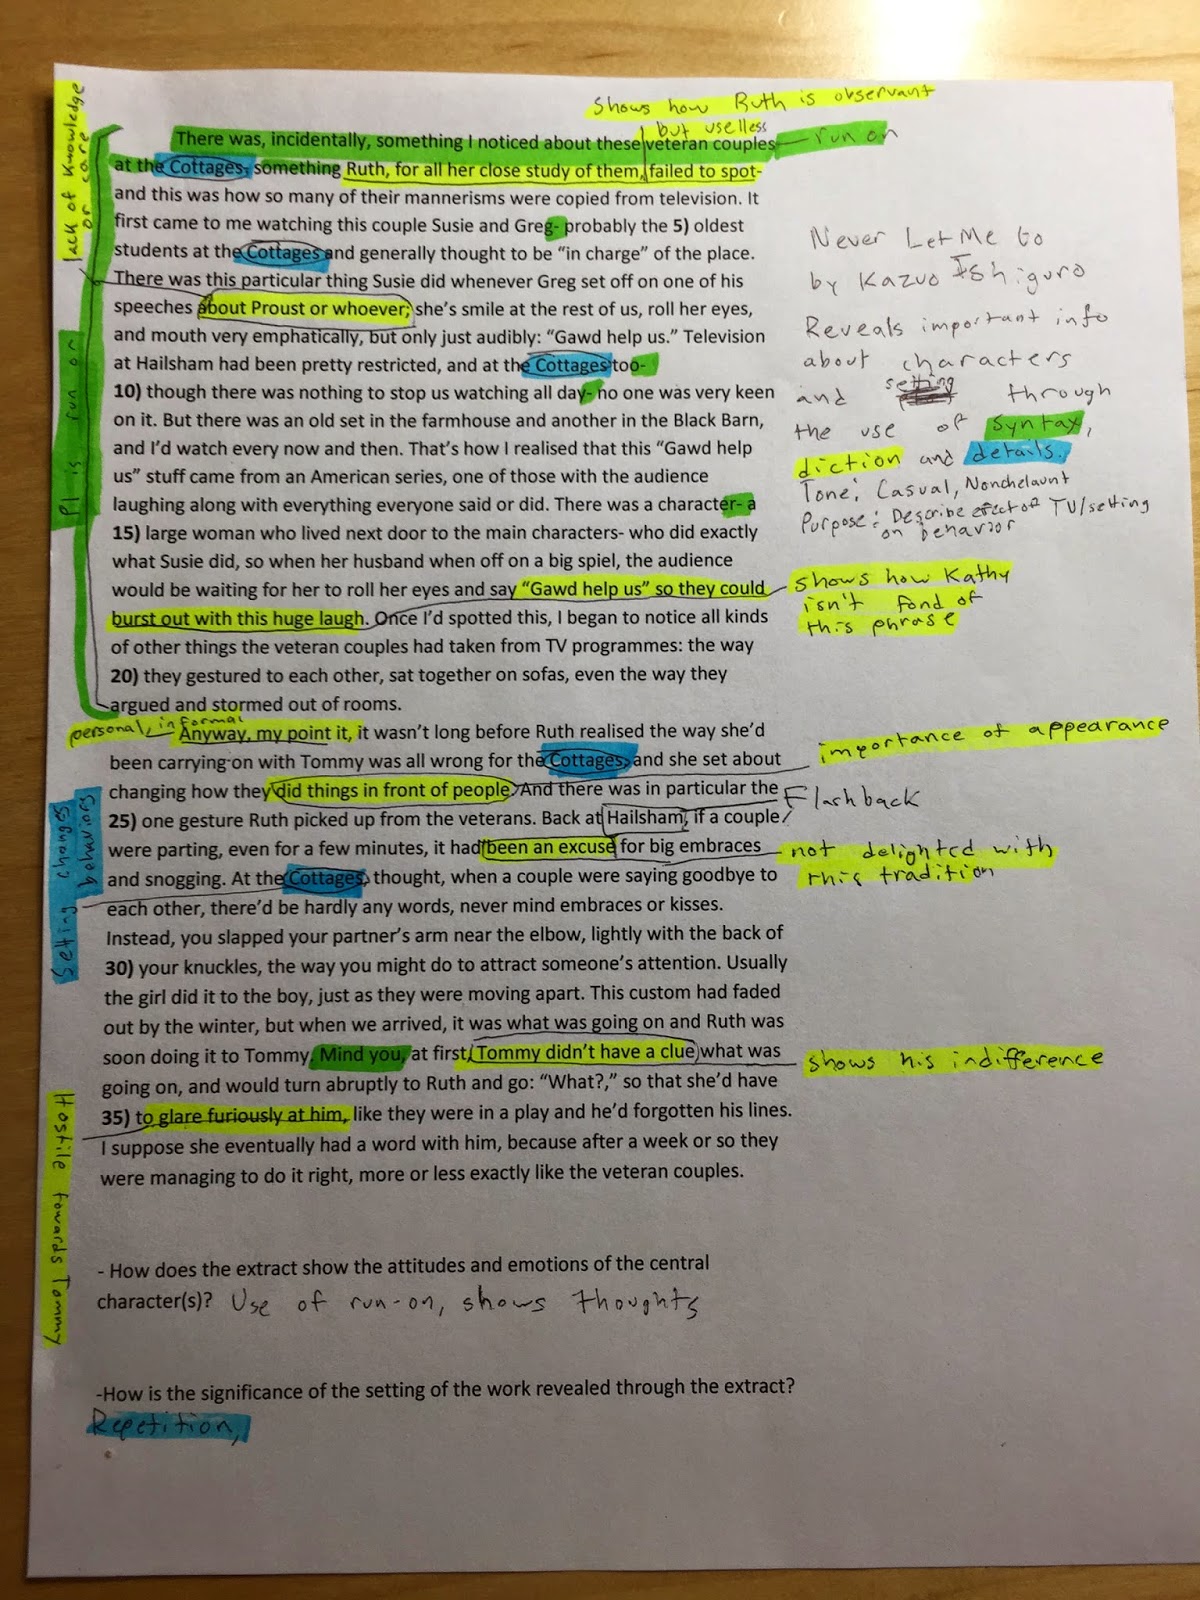 Shows how Ruth is observant
but useless
There was, incidentally, something I noticed about these veteran couples
run on
at the Cottages, something Ruth, for all her close study of them, failed to spot-
and this was how so many of their mannerisms were copied from television. It
first came to me watching this couple Susie and Greg- probably the 5) oldest
students at the Cottages and generally thought to be “in charge” of the place.
There was this particular thing Susie did whenever Greg set off on one of his
speeches about Proust or whoever; she’s smile at the rest of us, roll her eyes,
and mouth very emphatically, but only just audibly: “Gawd help us.” Television
at Hailsham had been pretty restricted, and at the Cottages too-
10) though there was nothing to stop us watching all day- no one was very keen
on it. But there was an old set in the farmhouse and another in the Black Barn,
and I’d watch every now and then. That’s how I realised that this “Gawd help
us” stuff came from an American series, one of those with the audience
laughing along with everything everyone said or did. There was a character- a
15) large woman who lived next door to the main characters- who did exactly
what Susie did, so when her husband when off on a big spiel, the audience
would be waiting for her to roll her eyes and say “Gawd help us” so they could
burst out with this huge laugh. Once I’d spotted this, I began to notice all kinds
of other things the veteran couples had taken from TV programmes: the way
20) they gestured to each other, sat together on sofas, even the way they
argued and stormed out of rooms.
lack of knowledge
or care
P1 is run on
Never Let Me Go
by Kazuo Ishiguro
Reveals important info
about characters
and setting through
the use of syntax,
diction and details.
Tone: Casual, Nonchelaunt
Purpose: Describe efect of TV/setting
on behavior
shows how Kathy
isn't fond of
this phrase
personal, informal
Anyway, my point it, it wasn’t long before Ruth realised the way she’d
been carrying on with Tommy was all wrong for the Cottages, and she set about
changing how they did things in front of people. And there was in particular the
25) one gesture Ruth picked up from the veterans. Back at Hailsham, if a couple
were parting, even for a few minutes, it had been an excuse for big embraces
and snogging. At the Cottages, thought, when a couple were saying goodbye to
each other, there’d be hardly any words, never mind embraces or kisses.
Instead, you slapped your partner’s arm near the elbow, lightly with the back of
30) your knuckles, the way you might do to attract someone’s attention. Usually
the girl did it to the boy, just as they were moving apart. This custom had faded
out by the winter, but when we arrived, it was what was going on and Ruth was
soon doing it to Tommy. Mind you, at first, Tommy didn’t have a clue what was
going on, and would turn abruptly to Ruth and go: “What?,” so that she’d have
35) to glare furiously at him, like they were in a play and he’d forgotten his lines.
I suppose she eventually had a word with him, because after a week or so they
were managing to do it right, more or less exactly like the veteran couples.
importance of appearance
Flashback
not delighted with
this tradition
shows his indifference
Setting changes
behaviors
Hostile towards Tommy
- How does the extract show the attitudes and emotions of the central
character(s)? Use of run-on, shows thoughts
-How is the significance of the setting of the work revealed through the extract?
Repetition,